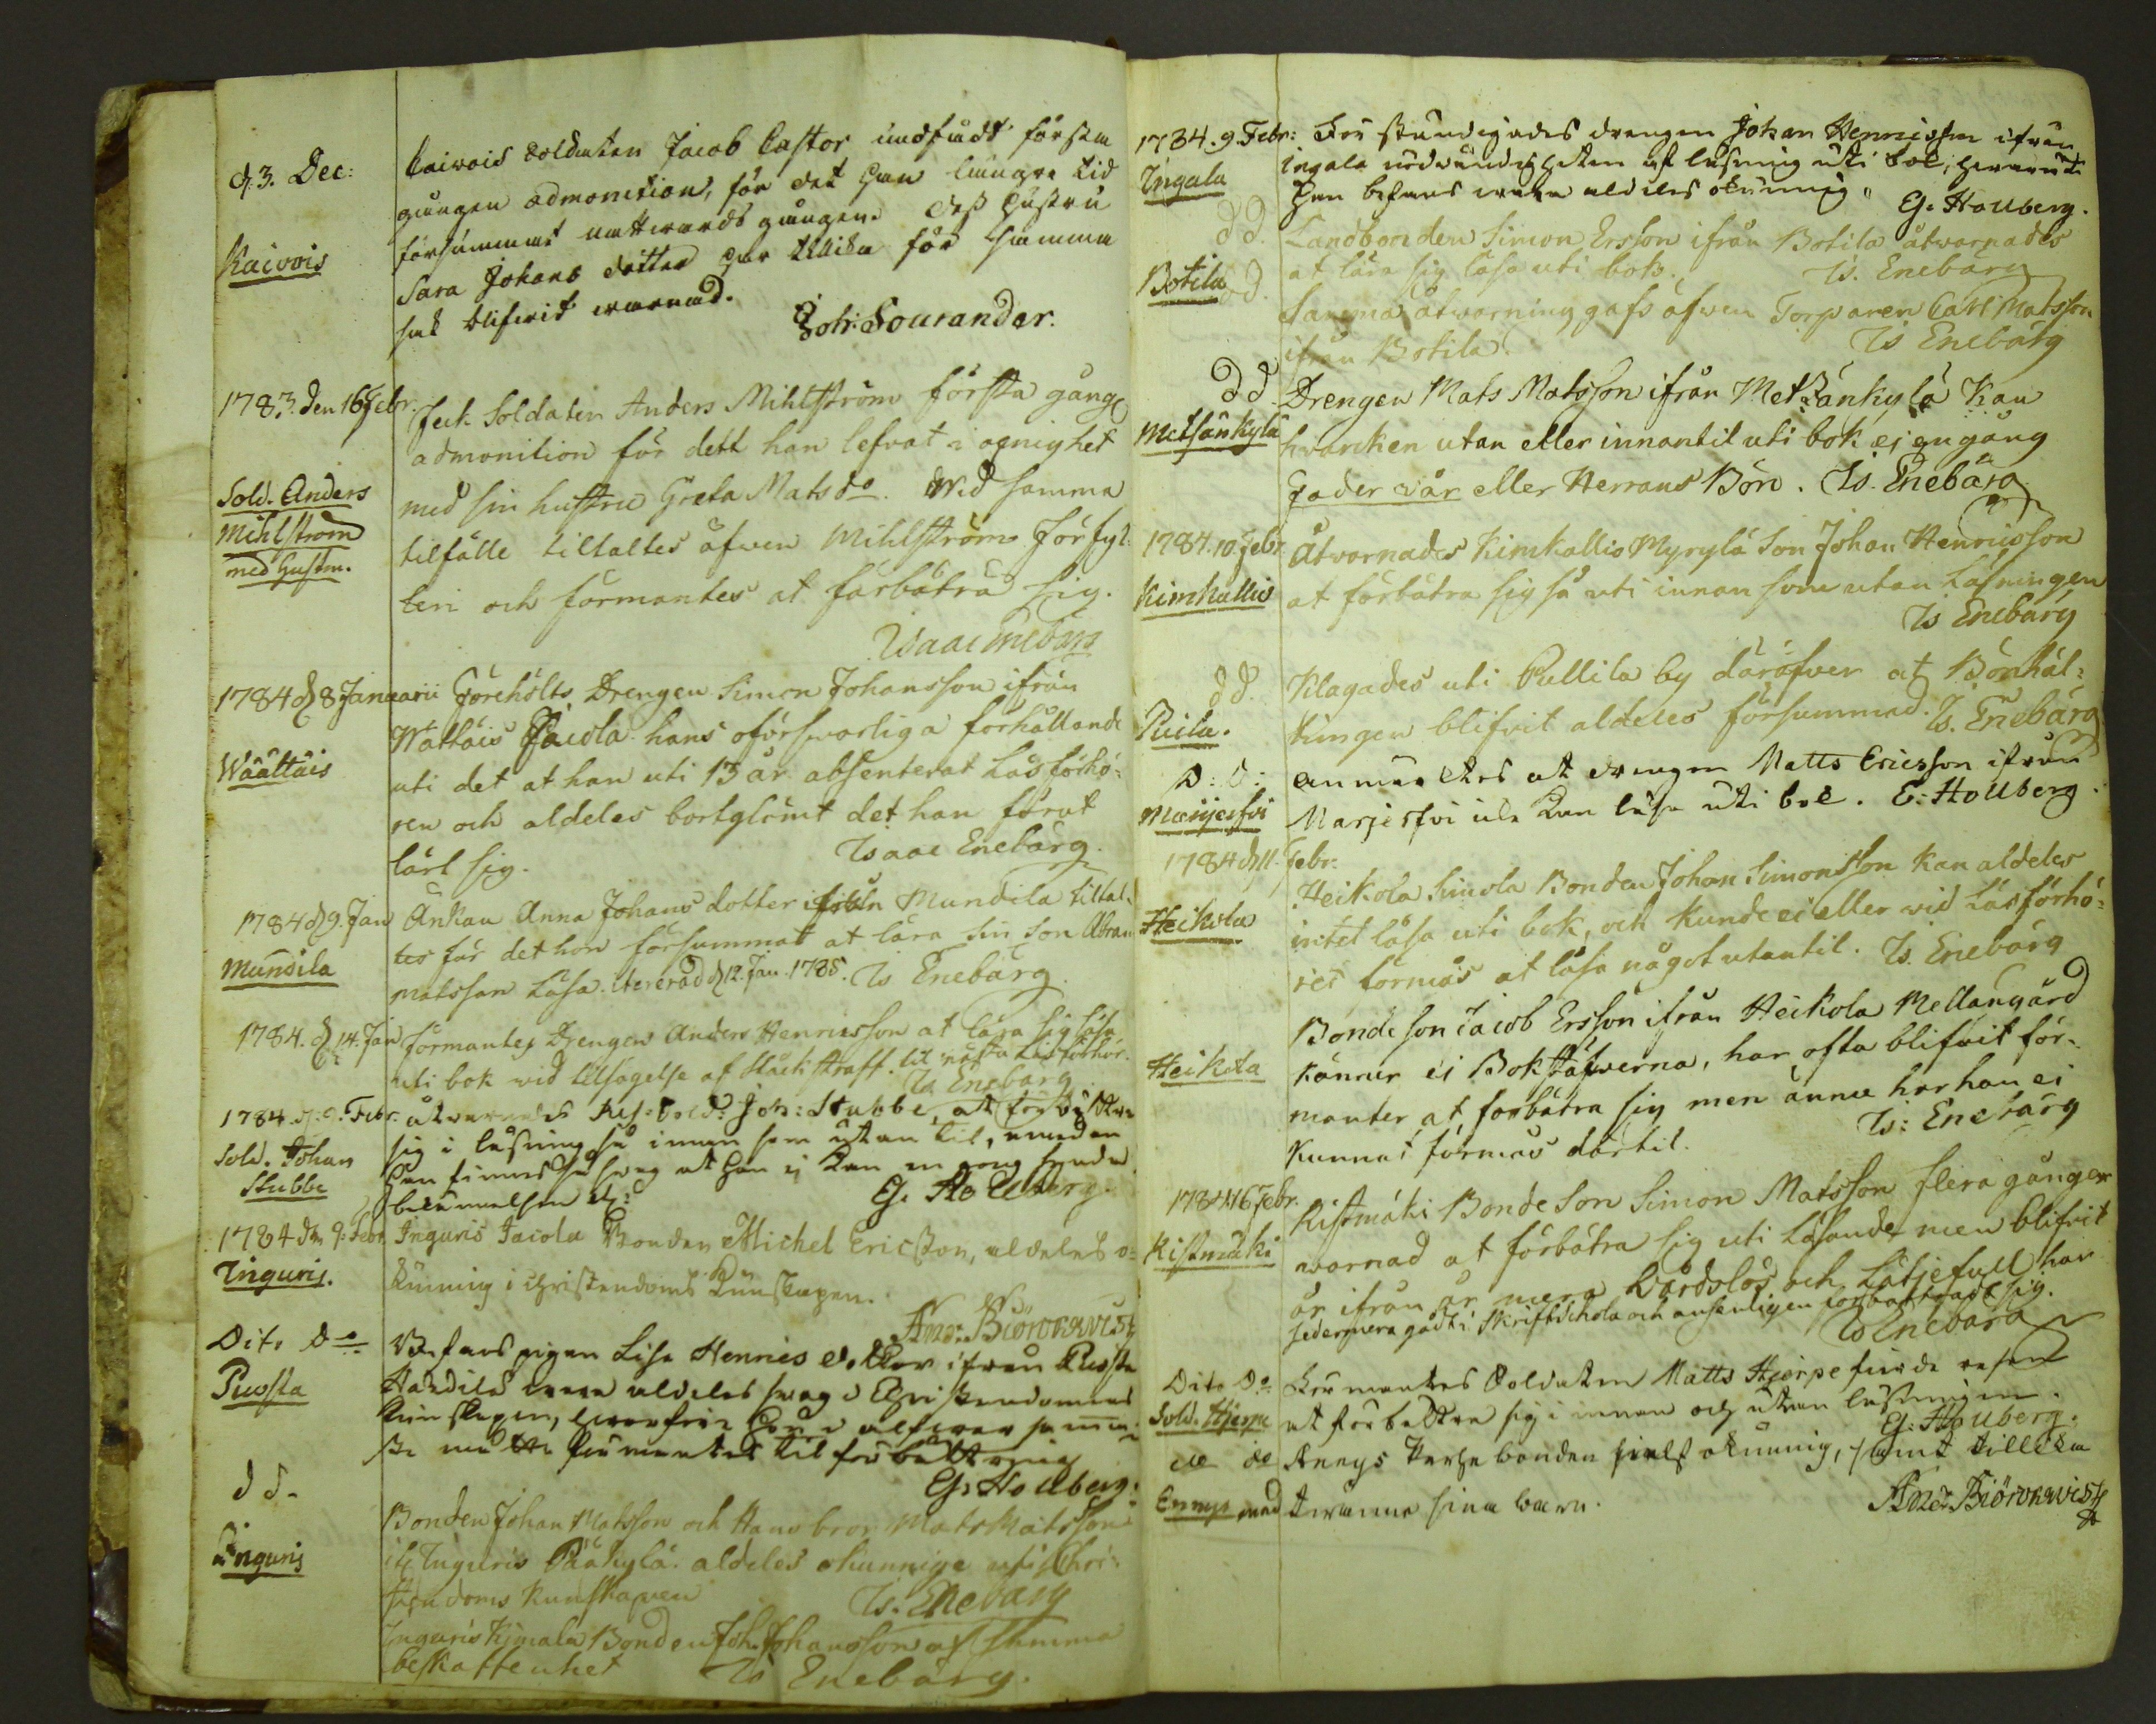 d. 3. Dec:
Kaivois
Caivois Soldaten Jacob Castor undfådt första
gången admonition, för det han längre tid
försummat nattwards gången. Dess hustru
Sara Johans dotter har tillika för samma
sak blifwit warnad.
Joh: Sourander.
1783. den 16 Febr.
Sold. Anders
Mihlström
med hustru.
feck Soldaten Anders Mihlström första gång
admonition för dett han lefvat i oenighet
med sin hustru Greta Mats do. Wid samma
tilfälle tiltaltes äfwen Mihlström för fyl=
leri och förmantes at förbätra sig.
Isaac Enebärg
1784 d 8 Januarii
Wäättäis
Föreholts Drengen Simon Johansson ifrån
Wättäis Jaiola hans oförswarliga förhållande
uti det at han uti 13 år absenterat Läsförhö=
ren och aldeles bortglömt det han förut
lärt sig.
Isaac Enebärg.
1784 d 9. Jan
Mundila
Änkan Anna Johans dotter ifrån Mundila tiltal=
tes för det hon försummat at lära sin son Abram
Matsson Läsa. Itererad d 12. Jan. 1785. Is Enebärg.
1784. d 14. Jan
förmantes Drengen Anders Henricsson at lära sig läsa
uti bok wid tilsägelse af Stäck straff til nästa Läsförhör.
Is. Enebärg
1784. d: 9. Febr.
Sold. Johan
Stubbe
åtwarnades Sold: Joh: Stubbe, at förbättra
sig i läsning så innan som utan til, emedan
han finnes så swag at han ej kan en gong
G. Hollberg.
1784 den 9: Febr.
Inguris.
Inguris Jacola Bonden Michel Ericsson, aldeles o=
kunnig i christendoms kunskapen.
And: Biörckqwist
Dito Do
Puosta
Befans pigan Lisa Henrics dotter ifrån Puosta
wara aldeles swag i Christendomens
kunskapen, hwarföre hon alfwarsamma=
ste måtte förmantes til förbättring
G: Hollberg.
dd.
Inguris
Bonden Johan Matsson och Hans bror Mats Matsson
if. Inguris Pääkylä aldeles okunnige uti Chri=
stendoms kunskapen
Is. Enebärg
Inguris Kimala Bonden Joh. Johansson af samma
beskaffenhet
Is Enebärg.
1784. 9. Febr:
Ingala
Förständigades drengen Johan Henricsson ifrån
Ingala nödwändigheten af läsning uti bok, hwaruti
han befans wara aldeles okunnig.
G. Hollberg.
dd.
Botila
Landbonden Simon Ersson ifrån Botila åtwarnades
at lära sig läsa uti bok.
Is. Enebärg
dd.
Samma åtwarning gafs äfwen Torparen Carl Matsson
ifrån Botila.
Is Enebärg
dd.
Metsänkylä
Drengen Mats Matsson ifrån Metsänkylä kan
hvarcken utan eller innantil uti bok ej en gång
Fader vår eller Herrans Bön. Is. Enebärg
1784. 10. Febr.
Kimkallio
Åtvarnades Kimkallio Myrylä Son Johan Henricsson
at förbätra sig så uti innan som utan Läsningen
Is Enebärg
dd.
Puila.
Klagades uti Pullila by däröfver at Bönhål=
ningen blifvit aldeles försummad. Is. Enebärg
D: D:
Marjeisfvi
anmältes at drengen Matts Ericsson ifrån
Marjeisfvi icke kan läsa uti bok. G: Hollberg.
1784 d 11. Febr.
Heikola
Heikola Simola Bonden Johan Simonsson kan aldeles
intet läsa uti bok, och kunde ei eller wid Läsförhö=
ret förmås at läsa något utantil. Is. Enebärg
Heikola
Bonde son Jacob Ersson ifrån Heikola Mellangård
känner ei Bokstäfwerna, har ofta blifvit för=
manter at förbätra sig men ännu har han ei
kunnat förmås därtil.
Is: Enebärg
1784 16 Febr.
Kistmäki
Kistmäki Bonde Son Simon Matsson flera gånger
warnad at förbätra sig uti Läsande men blifvit
år ifrån år mera Wårdslös och Lätjefull har
sedermera gådt i Skriftschola och ansenligen förbättradt sig.
Is Enebärg
Dito Do
Sold. Hjerpe
Förmantes Soldaten Matts Hjerpe
at förbättra sig i innan och utan läsningen.
G: Hollberg.
Ennys
Ennys bonden sielf okunnig, samt tillika
med tvänne sina barn.
And: Biörckqwist